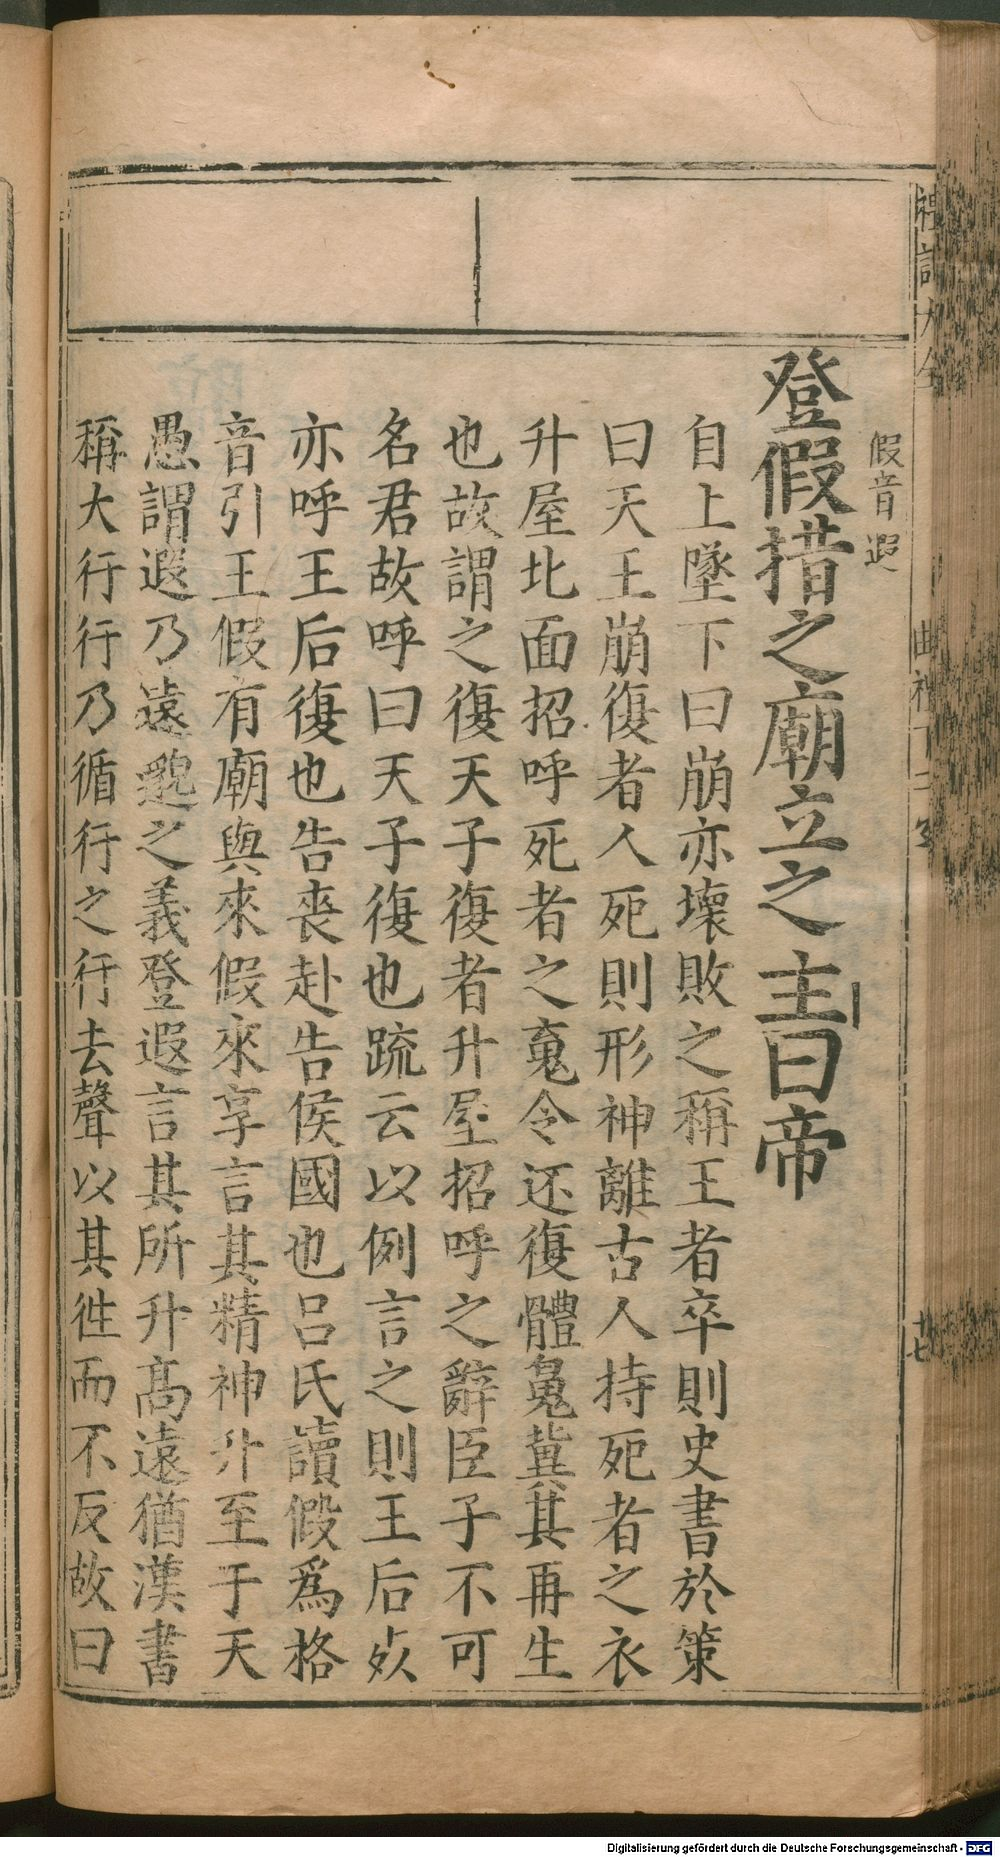 禮記大全
曲禮下二
廿七
假音遐
登假措之廟立之主曰帝
自上墜下曰崩亦壞敗之稱王者卒則史書於策
曰天王崩復者人死則形神離古人持死者之衣
升屋北面招呼死者之䰟令还復體䰟兾其再生
也故謂之復天子復者升屋招呼之辭臣子不可
名君故呼曰天子復也疏云以例言之則王后死
亦呼王后復也告喪赴告侯國也呂氏讀假爲格
音引王假有廟與來假來享言其精神升至于天
愚謂遐乃遠邈之義登遐言其所升高遠猶漢書
稱大行行乃循行之行去聲以其徃而不反故曰
Digitalisierung gefördert durch die Deutsche Forschungsgemeinschaft - DFG